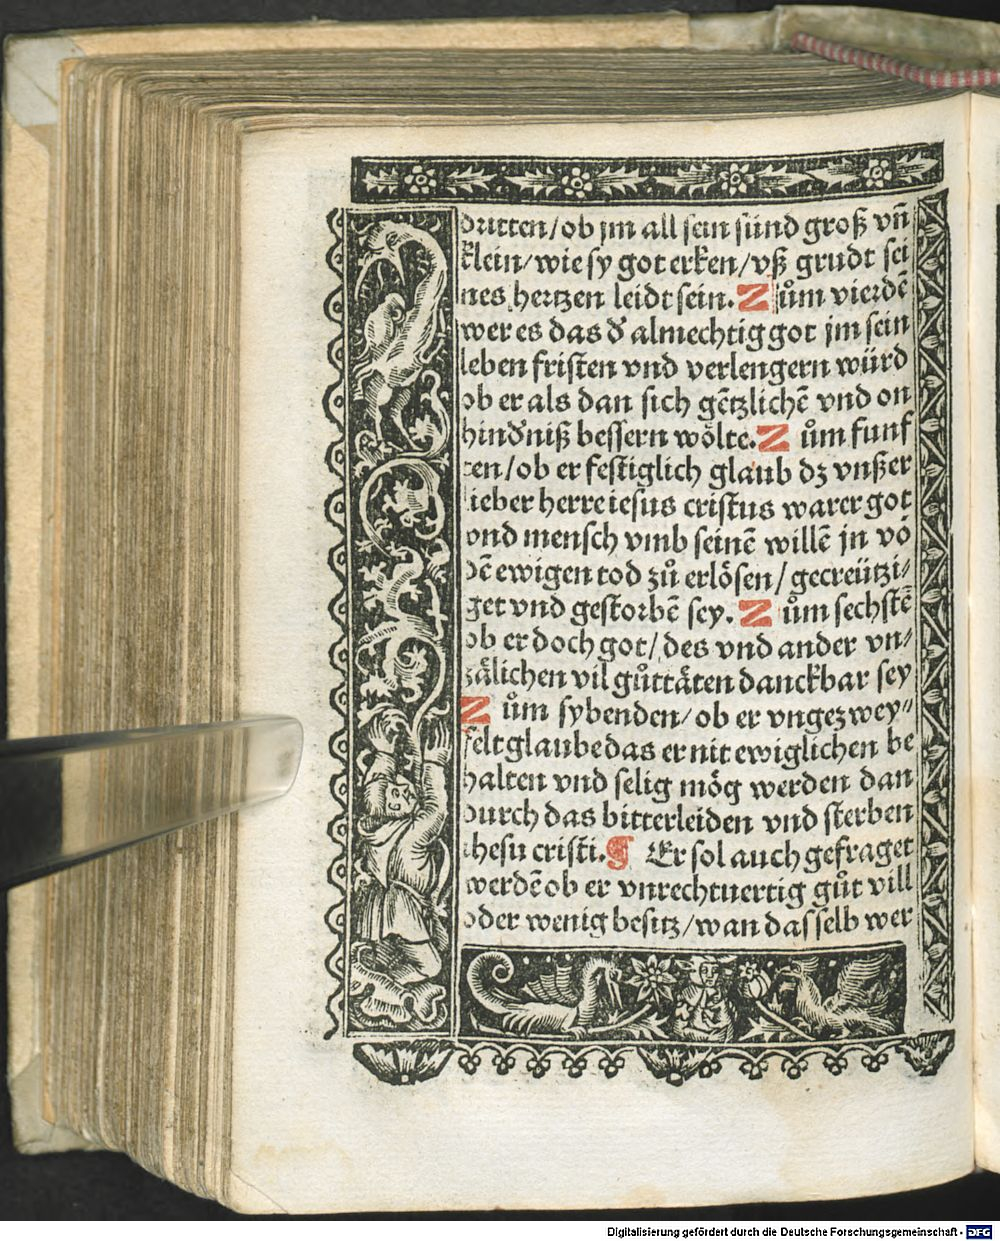 dritten/ob jm all sein sünd groß vñ
klein/wie sy got erken/vß grūdt sei
nes hertzen leidt sein. Zům vierdē
wer es das đ almechtig got jm sein
leben fristen vnd verlengern würd
ob er als dan sich gētzlichē vnd on
hindđniß bessern wölte. Zům funf
ten/ob er festiglich glaub dz vnßer
lieber herre iesus cristus warer got
vnd mensch vmb seinē willē jn vō
dē ewigen tod zů erlösen/gecreützi⸗
get vnd gestorbē sey. Zům sechstē
ob er doch got/des vnd ander vn⸗
zälichen vil gůttäten danckbar sey
Zům sybenden/ob er vngezwey⸗
felt glaube das er nit ewiglichen be
halten vnd selig mög werden dan
durch das bitter leiden vnd sterben
ihesu cristi. ¶ Er sol auch gefraget
werdē ob er vnrechtuertig gůt vill
oder wenig besitz/wan das selb wer
Digitalisierung gefördert durch die Deutsche Forschungsgemeinschaft - DFG